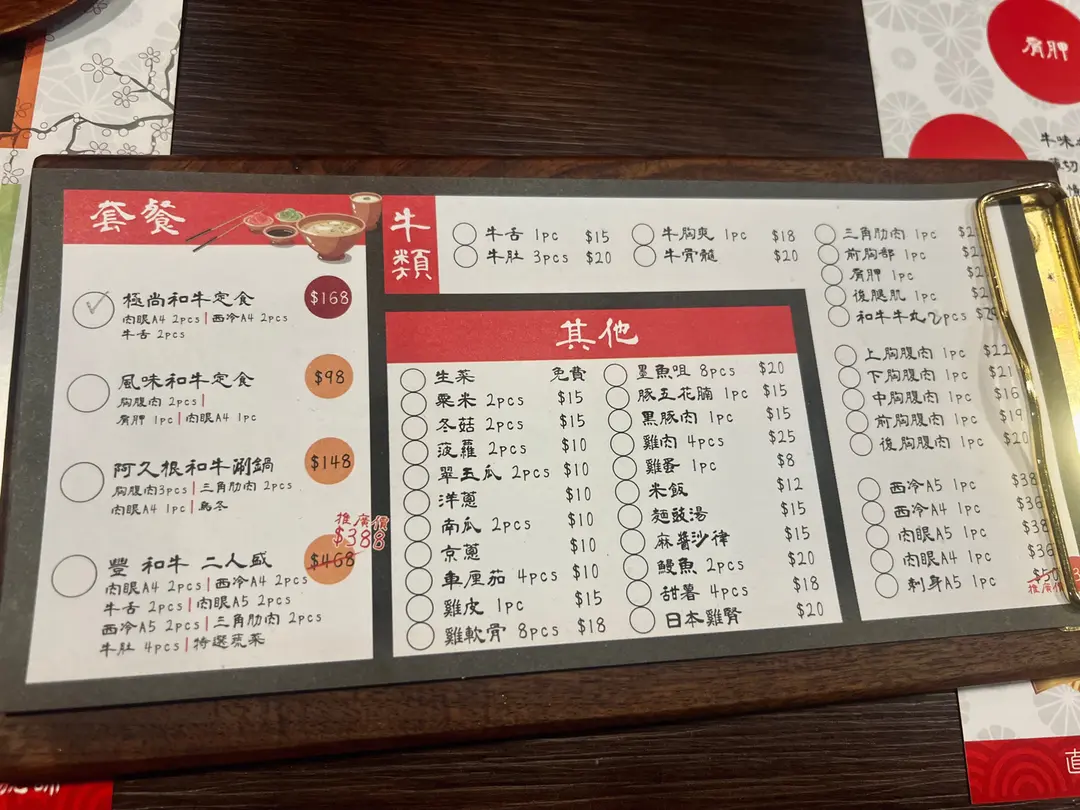 肩胛
套餐
極尚和牛定食 $168
肉眼A4 2pcs | 西冷A4 2pcs
牛舌 2pcs
風味和牛定食 $98
胸腹肉 2pcs |
肩胛 1pc | 肉眼A4 1pc
阿久根和牛涮鍋 $148
胸腹肉3pcs | 三角肋肉 2pcs
肉眼A4 1pc | 烏冬
推廣價
$388
豐 和牛 二人盛 $468
肉眼A4 2pcs | 西冷A4 2pcs
牛舌 2pcs | 肉眼A5 2pcs
西冷A5 2pcs | 三角肋肉 2pcs
牛肚 4pcs | 特選蔬菜
牛類
牛舌 1pc $15
牛肚 3pcs $20
牛胸爽 1pc $18
牛骨髓 $20
三角肋肉 1pc
前胸部 1pc
肩胛 1pc
後腿肌 1pc
和牛牛丸2pcs
上胸腹肉 1pc $22
下胸腹肉 1pc $21
中胸腹肉 1pc $16
前胸腹肉 1pc $19
後胸腹肉 1pc $20
西冷A5 1pc $38
西冷A4 1pc $36
肉眼A5 1pc $38
肉眼A4 1pc $36
刺身A5 1pc $50
推廣價
其他
生菜 免費
粟米 2pcs $15
冬菇 2pcs $15
菠蘿 2pcs $10
翠玉瓜 2pcs $10
洋蔥 $10
南瓜 2pcs $10
京蔥 $10
車厘茄 4pcs $10
雞皮 1pc $15
雞軟骨 8pcs $18
墨魚咀 8pcs $20
豚五花腩 1pc $15
黑豚肉 1pc $15
雞肉 4pcs $25
雞蛋 1pc $8
米飯 $12
麵豉湯 $15
麻醬沙律 $15
鰻魚 2pcs $20
甜薯 4pcs $18
日本雞腎 $20